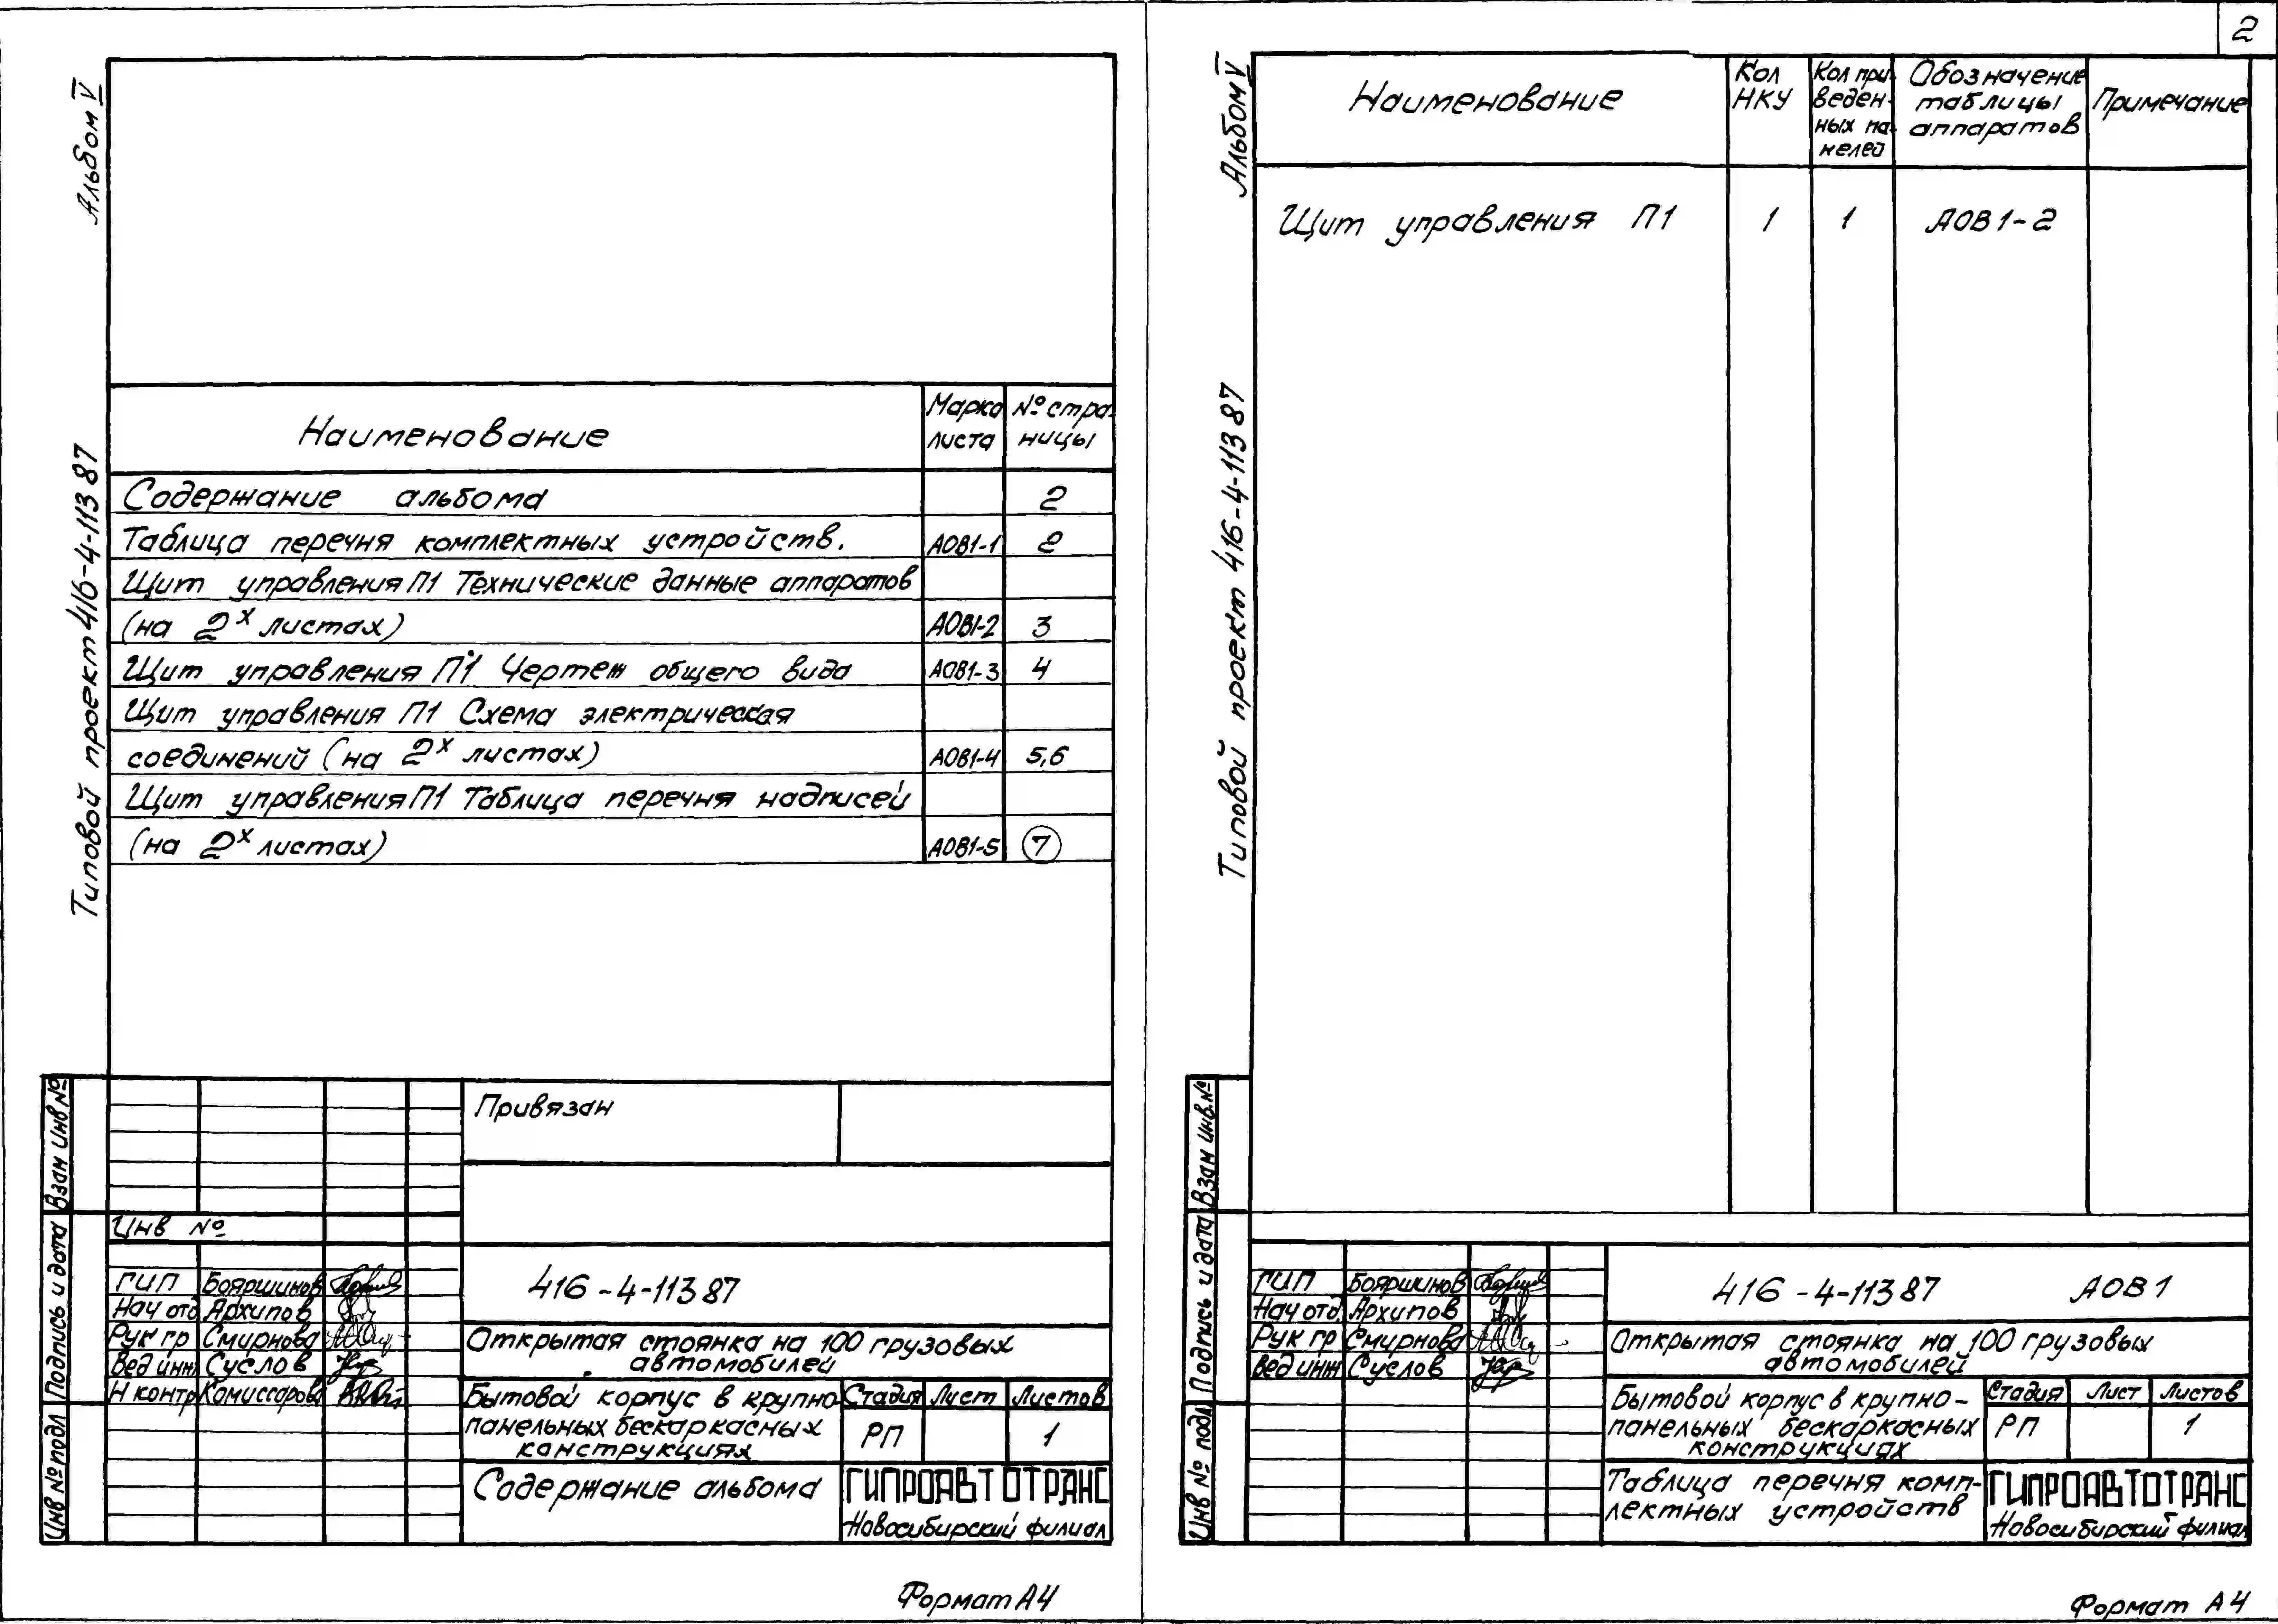 2
Альбом V
Типовой проект 416-4-113 87
Наименование
Марка листа
№ страницы
Содержание альбома 2
Таблица перечня комплектных устройств. АОВ1-1 2
Щит управления П1 Технические данные аппаратов
(на 2х листах) АОВ1-2 3
Щит управления П1 Чертеж общего вида АОВ1-3 4
Щит управления П1 Схема электрическая
соединений (на 2х листах) АОВ1-4 5,6
Щит управления П1 Таблица перечня надписей
(на 2х листах) АОВ1-5 7
Взам инв №
Подпись и дата
Инв № подл
Привязан
Инв №
ГИП Бояршинов
Нач отд Архипов
Рук гр Смирнова
Вед инж Суслов
Н контр Комиссарова
416-4-113 87
Открытая стоянка на 100 грузовых
автомобилей
Бытовой корпус в крупно-
панельных бескаркасных
конструкциях
Стадия Лист Листов
РП 1
Содержание альбома
ГИПРОАВТОТРАНС
Новосибирский филиал
Формат А4
Альбом V
Типовой проект 416-4-113 87
Наименование
Кол
НКУ
Кол при-
веден-
ных па-
нелей
Обозначение
таблицы
аппаратов
Примечание
Щит управления П1 1 1 АОВ1-2
Взам инв.№
Подпись и дата
Инв № подл
ГИП Бояршинов
Нач отд. Архипов
Рук гр Смирнова
Вед инж Суслов
416-4-113 87 АОВ1
Открытая стоянка на 100 грузовых
автомобилей
Бытовой корпус в крупно-
панельных бескаркасных
конструкциях
Стадия Лист Листов
РП 1
Таблица перечня комп-
лектных устройств
ГИПРОАВТОТРАНС
Новосибирский филиал
Формат А4